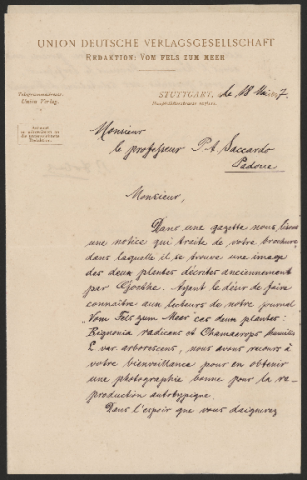 UNION DEUTSCHE VERLAGSGESELLSCHAFT
REDAKTION: VOM FELS ZUM MEER
Telegrammadresse:
Union Verlag.
STUTTGART, le 18 7.
Monsieur
le professeur P. A. Saccardo
Padoue
Monsieur,
Dans une gazette nous lisons
une notice qui traite de votre brochure
dans laquelle il se trouve une image
des deux plantes décrites anciennement
par Goethe. Ayant le désir de faire
connaître aux lecteurs de notre journal
"Vom Fels zum Meer" ces deux plantes:
Bignonia radicans et Chamaerops humilis
L. var arborescens, nous avons recours à
votre bienveillance pour en obtenir
une photographie bonne pour la re-
production autotypique.
Dans l'espoir que vous daignerez